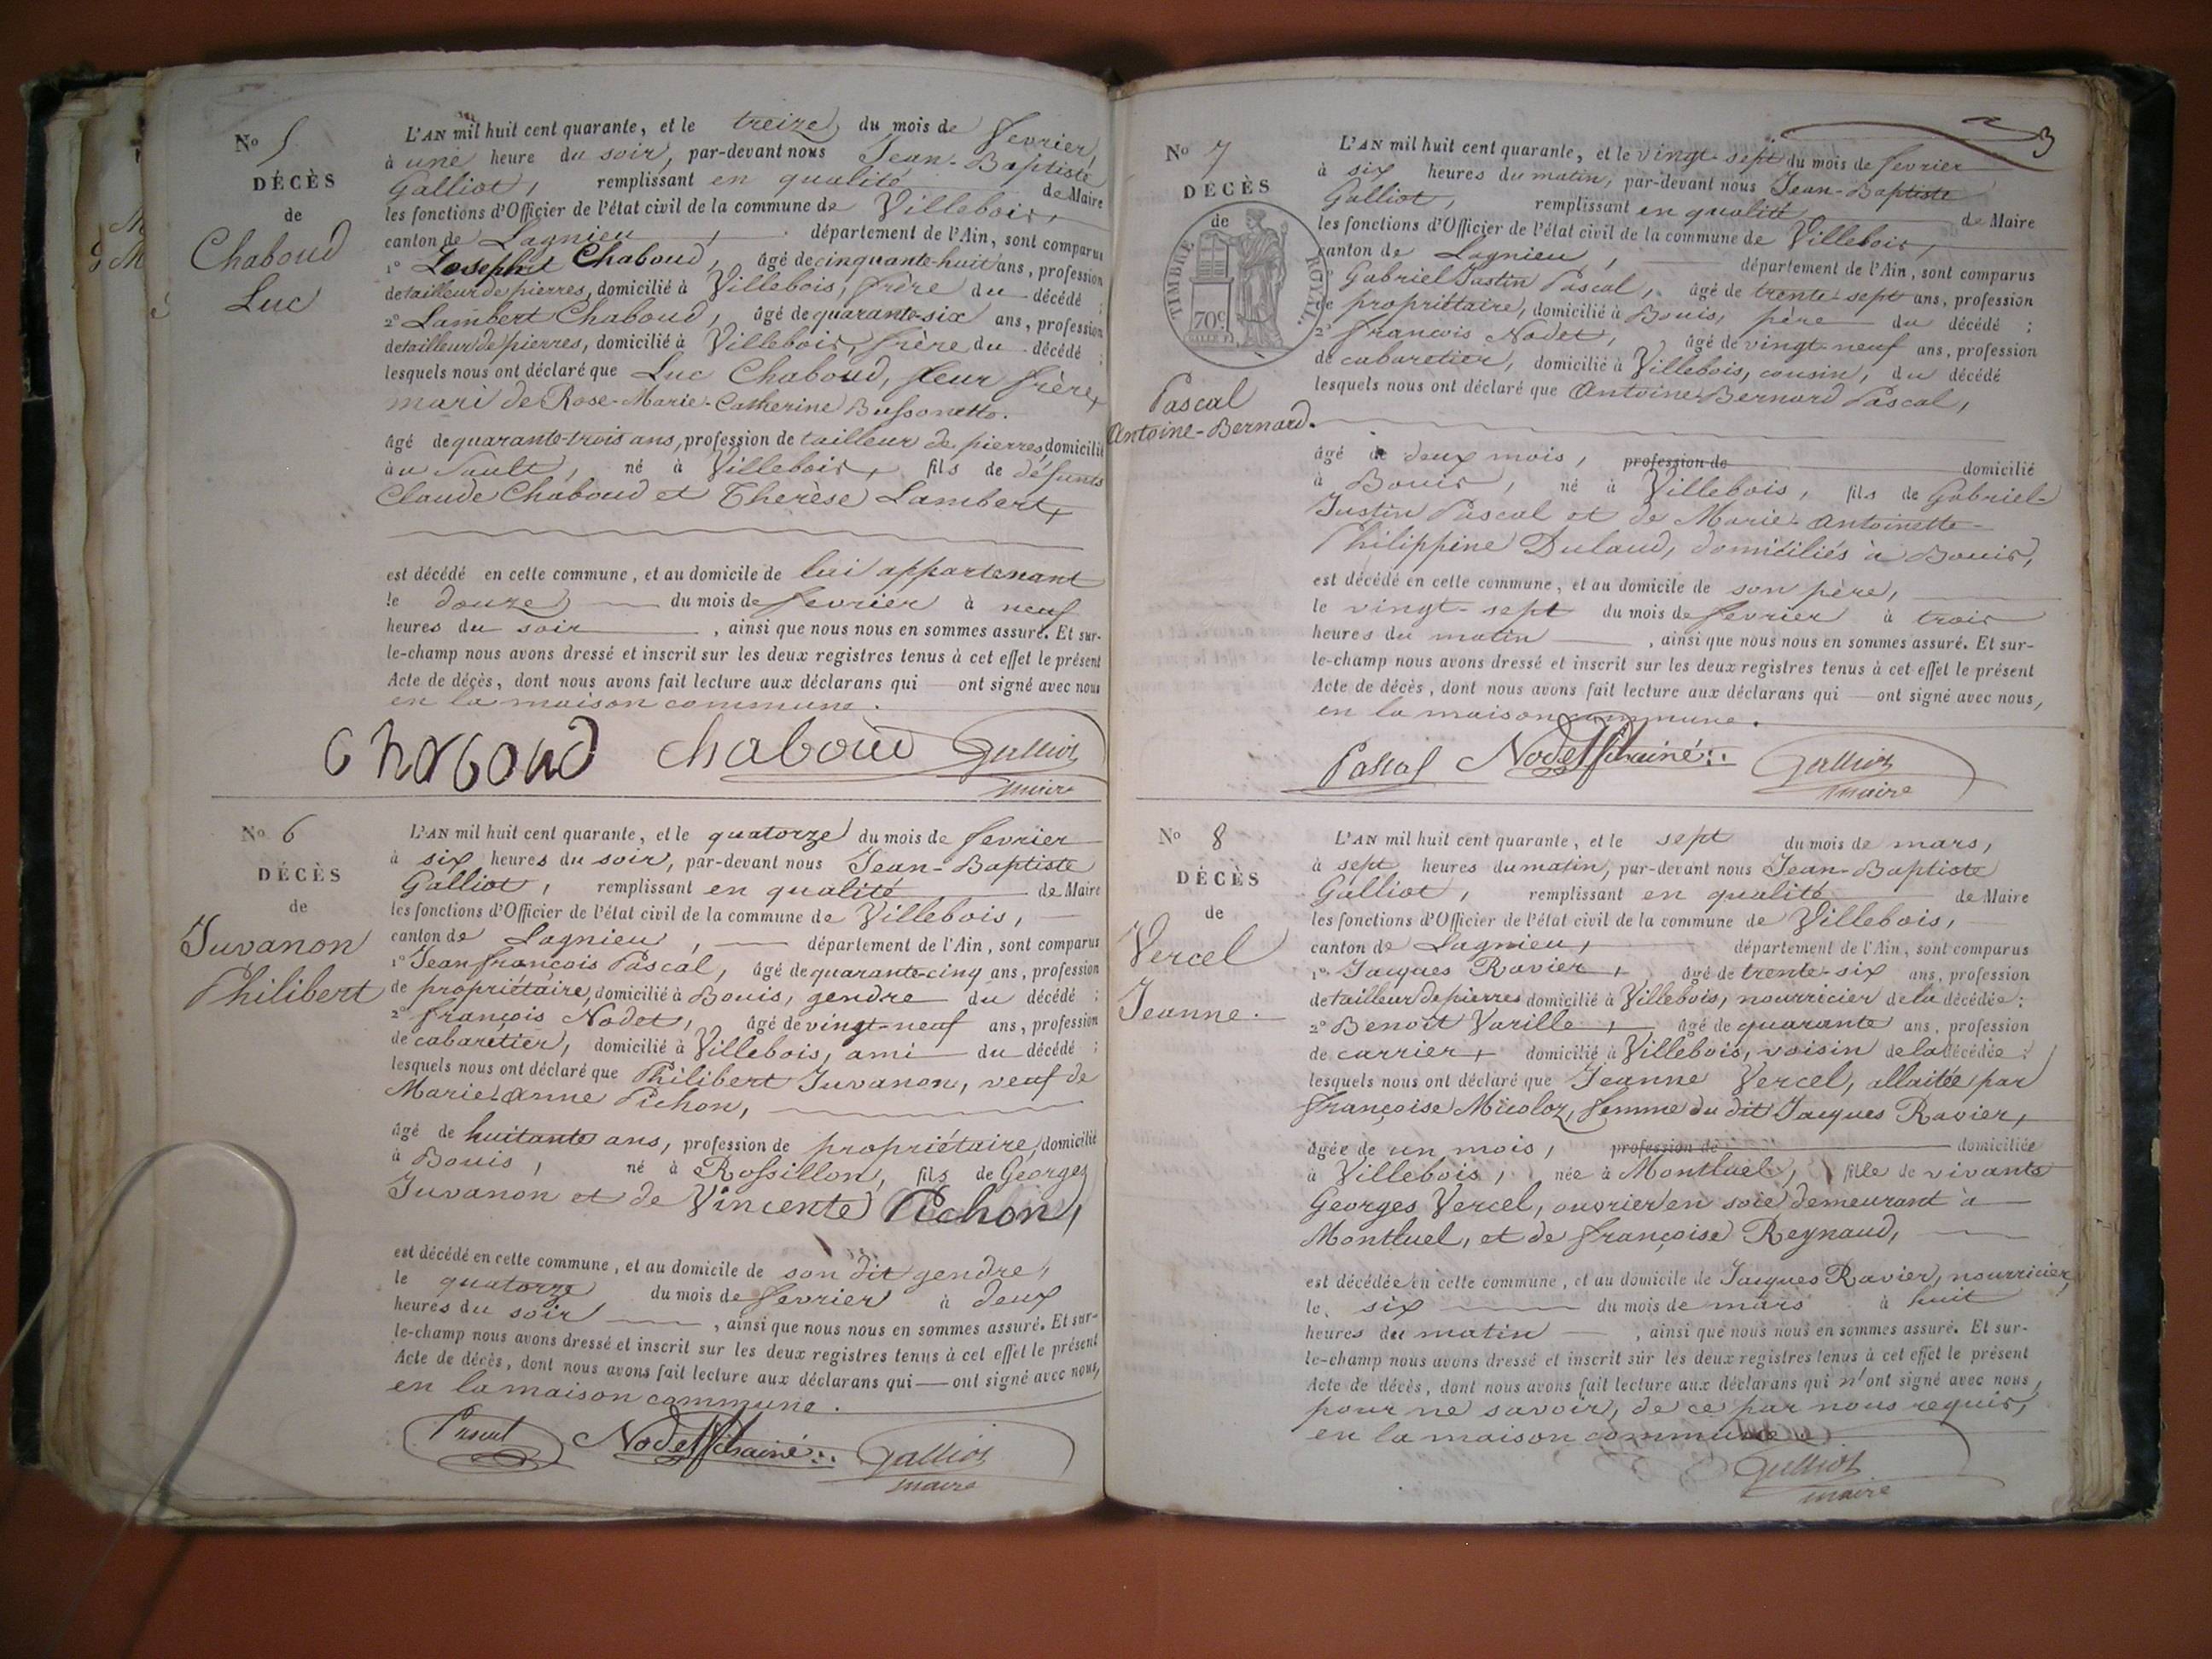 No 5
DÉCÈS
de
Chaboud
Luc
L'AN mil huit cent quarante, et le treize du mois de fevrier,
à une heure du soir, par-devant nous Jean-Baptiste
Galliot, remplissant en qualité de Maire
les fonctions d'Officier de l'état civil de la commune de Villebois,
canton de Lagnieu, département de l'Ain, sont comparus
1° Joseph Chaboud, âgé de cinquante-huit ans, profession
de tailleur de pierres, domicilié à Villebois, frère du décédé ;
2° Lambert Chaboud, âgé de quarante-six ans, profession
de tailleur de pierres, domicilié à Villebois, frère du décédé ;
lesquels nous ont déclaré que Luc Chaboud, leur frère,
mari de Rose-Marie-Catherine Bussonetto.
âgé de quarante-trois ans, profession de tailleur de pierres, domicilié
au Sault, né à Villebois, fils de défunts
Claude Chaboud et Therèse Lambert,
est décédé en cette commune, et au domicile de lui appartenant
le douze du mois de fevrier à neuf
heures du soir, ainsi que nous nous en sommes assuré. Et sur-
le-champ nous avons dressé et inscrit sur les deux registres tenus à cet effet le présent
Acte de décès, dont nous avons fait lecture aux déclarans qui — ont signé avec nous
en la maison commune.
Chaboud Chaboud Galliot
maire
No 6
DÉCÈS
de
Juvanon
Philibert
L'AN mil huit cent quarante, et le quatorze du mois de fevrier
à six heures du soir, par-devant nous Jean-Baptiste
Galliot, remplissant en qualité de Maire
les fonctions d'Officier de l'état civil de la commune de Villebois,
canton de Lagnieu, département de l'Ain, sont comparus
1° Jean françois Pascal, âgé de quarante-cinq ans, profession
de propriétaire, domicilié à Bouis, gendre du décédé ;
2° françois Nodet, âgé de vingt-neuf ans, profession
de cabaretier, domicilié à Villebois, ami du décédé ;
lesquels nous ont déclaré que Philibert Juvanon, veuf de
Marie-anne Pichon,
âgé de huitante ans, profession de propriétaire, domicilié
à Bouis, né à Rossillon, fils de Georges
Juvanon et de Vincente Pichon,
est décédé en cette commune, et au domicile de son dit gendre,
le quatorze du mois de fevrier à deux
heures du soir, ainsi que nous nous en sommes assuré. Et sur-
le-champ nous avons dressé et inscrit sur les deux registres tenus à cet effet le présent
Acte de décès, dont nous avons fait lecture aux déclarans qui — ont signé avec nous,
en la maison commune.
Pascal Nodet Galliot
maire
3
No 7
DÉCÈS
de
TIMBRE ROYAL
70c
Pascal
Antoine-Bernard.
L'AN mil huit cent quarante, et le vingt-sept du mois de fevrier
à six heures du matin, par-devant nous Jean-Baptiste
Galliot, remplissant en qualité de Maire
les fonctions d'Officier de l'état civil de la commune de Villebois,
canton de Lagnieu, département de l'Ain, sont comparus
1° Gabriel Justin Pascal, âgé de trente-sept ans, profession
de propriétaire, domicilié à Bouis, père du décédé ;
2° francois Nodet, âgé de vingt-neuf ans, profession
de cabaretier, domicilié à Villebois, cousin, du décédé
lesquels nous ont déclaré que Antoine-Bernard Pascal,
âgé de deux mois, profession de domicilié
à Bouis, né à Villebois, fils de Gabriel-
Justin Pascal et de Marie-antoinette-
Philippine Dulaud, domiciliés à Bouis,
est décédé en cette commune, et au domicile de son père,
le vingt-sept du mois de fevrier à trois
heures du matin, ainsi que nous nous en sommes assuré. Et sur-
le-champ nous avons dressé et inscrit sur les deux registres tenus à cet effet le présent
Acte de décès, dont nous avons fait lecture aux déclarans qui — ont signé avec nous,
en la maison commune.
Pascal Nodet Galliot
maire
No 8
DÉCÈS
de
Vercel
Jeanne.
L'AN mil huit cent quarante, et le sept du mois de mars,
à sept heures du matin, par-devant nous Jean-Baptiste
Galliot, remplissant en qualité de Maire
les fonctions d'Officier de l'état civil de la commune de Villebois,
canton de Lagnieu, département de l'Ain, sont comparus
1° Jacques Ravier, âgé de trente-six ans, profession
de tailleur de pierres domicilié à Villebois, nourricier de la décédée ;
2° Benoit Varille, âgé de quarante ans, profession
de carrier, domicilié à Villebois, voisin de la décédée ;
lesquels nous ont déclaré que Jeanne Vercel, allaitée par
françoise Micoloz, femme du dit Jacques Ravier,
âgée de un mois, profession de domiciliée
à Villebois, née à Montluel, fille de vivants
Georges Vercel, ouvrier en soie demeurant à
Montluel, et de françoise Reynaud,
est décédée en cette commune, et au domicile de Jacques Ravier, nourricier,
le six du mois de mars à huit
heures du matin, ainsi que nous nous en sommes assuré. Et sur-
le-champ nous avons dressé et inscrit sur les deux registres tenus à cet effet le présent
Acte de décès, dont nous avons fait lecture aux déclarans qui n'ont signé avec nous,
pour ne savoir, de ce par nous requis,
en la maison commune.
Galliot
maire